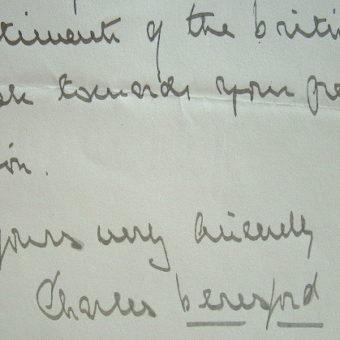 timents of the briti
towards your pre
ion.
yours very sincerely
Charles beresford